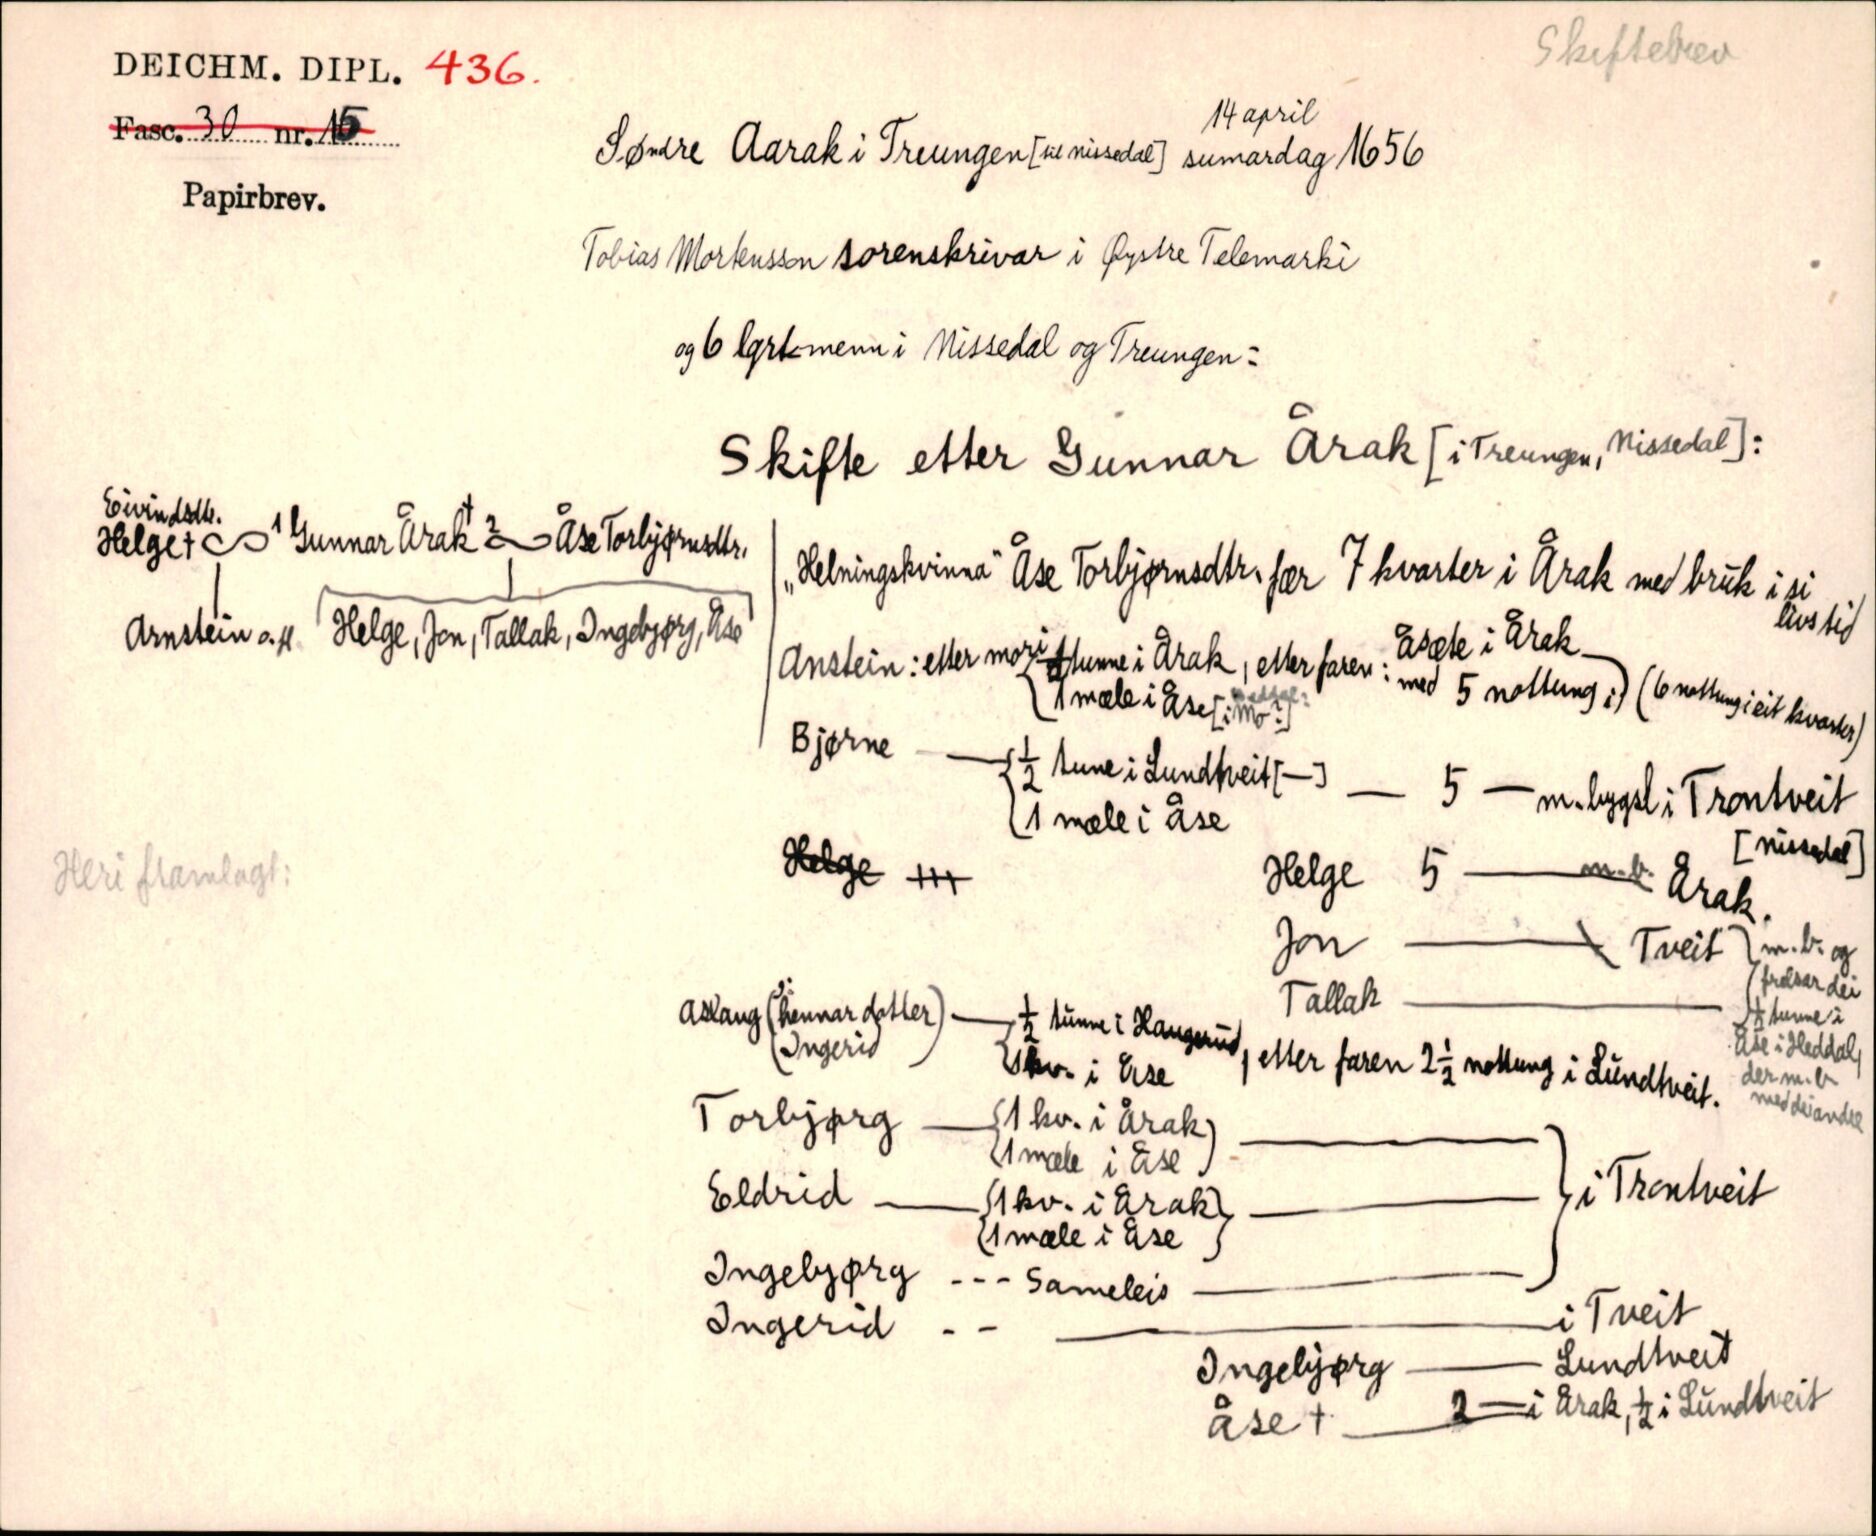 DEICHM. DIPL. 436.
Skiftebrev
Fasc. 30 nr. 15
Papirbrev.
14 april
Søndre Aarak i Treungen [til Nissedal] sumardag 1656
Tobias Mortensson sorenskrivar i Øystre Telemarki
og 6 lgrt menn i Nissedal og Treungen:
Skifte etter Gunnar Årak [i Treungen, Nissedal]:
Eivindsdtr.
Helge† 1 Gunnar Årak† 2 Åse Torbjørnsdtr.
Arnstein o. fl. Helge, Jon, Tallak, Ingebjørg, Åse
„Helningskvinna" Åse Torbjørnsdtr. fær 7 kvarter i Årak med bruk i si
livstid
Anstein: etter mori tunne i Årak, etter faren: Åsæte i Årak
1 mæle i Åse [i Mo?] med 5 nottung i (6 nottung i eit kvarter)
Bjørne — ½ tune i Lundtveit [—] — 5 — m. bygsl i Trontveit
1 mæle i Åse [Nissedal]
Helge Helge 5 — m. b. Årak.
Jon — Tveit m. b. og
frelsar dei
Tallak — ½ tunne i
Åse i Heddal,
der m. b.
med dei andre
Aslaug (hennar dotter) — ½ tunne i Haugerud, etter faren 2½ nottung i Lundtveit.
Ingerid kv. i Åse
Torbjørg — 1 kv. i Årak —
1 mæle i Åse
Eldrid — 1 kv. i Årak — i Trontveit
1 mæle i Åse
Ingebjørg - - - Sameleis —
Ingerid - - — i Tveit
Ingebjørg — Lundtveit
Åse † — 2 — i Årak, ½ i Lundtveit
Heri framlagt: